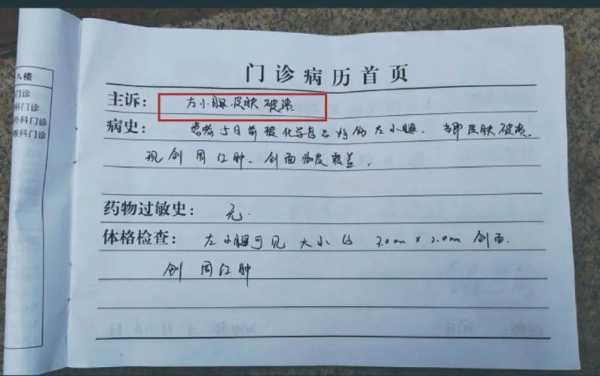 人楼
门诊
科门诊
外科门诊
眼科门诊
门诊病历首页
主诉: 左小腿皮肤破溃
病史: 患者5日前被化学药品灼伤左小腿. 皮肤破溃.
现创周红肿. 创面痂皮覆盖.
药物过敏史: 无.
体格检查: 左小腿可见大小约 2.0cm × 2.0cm 创面.
创周红肿